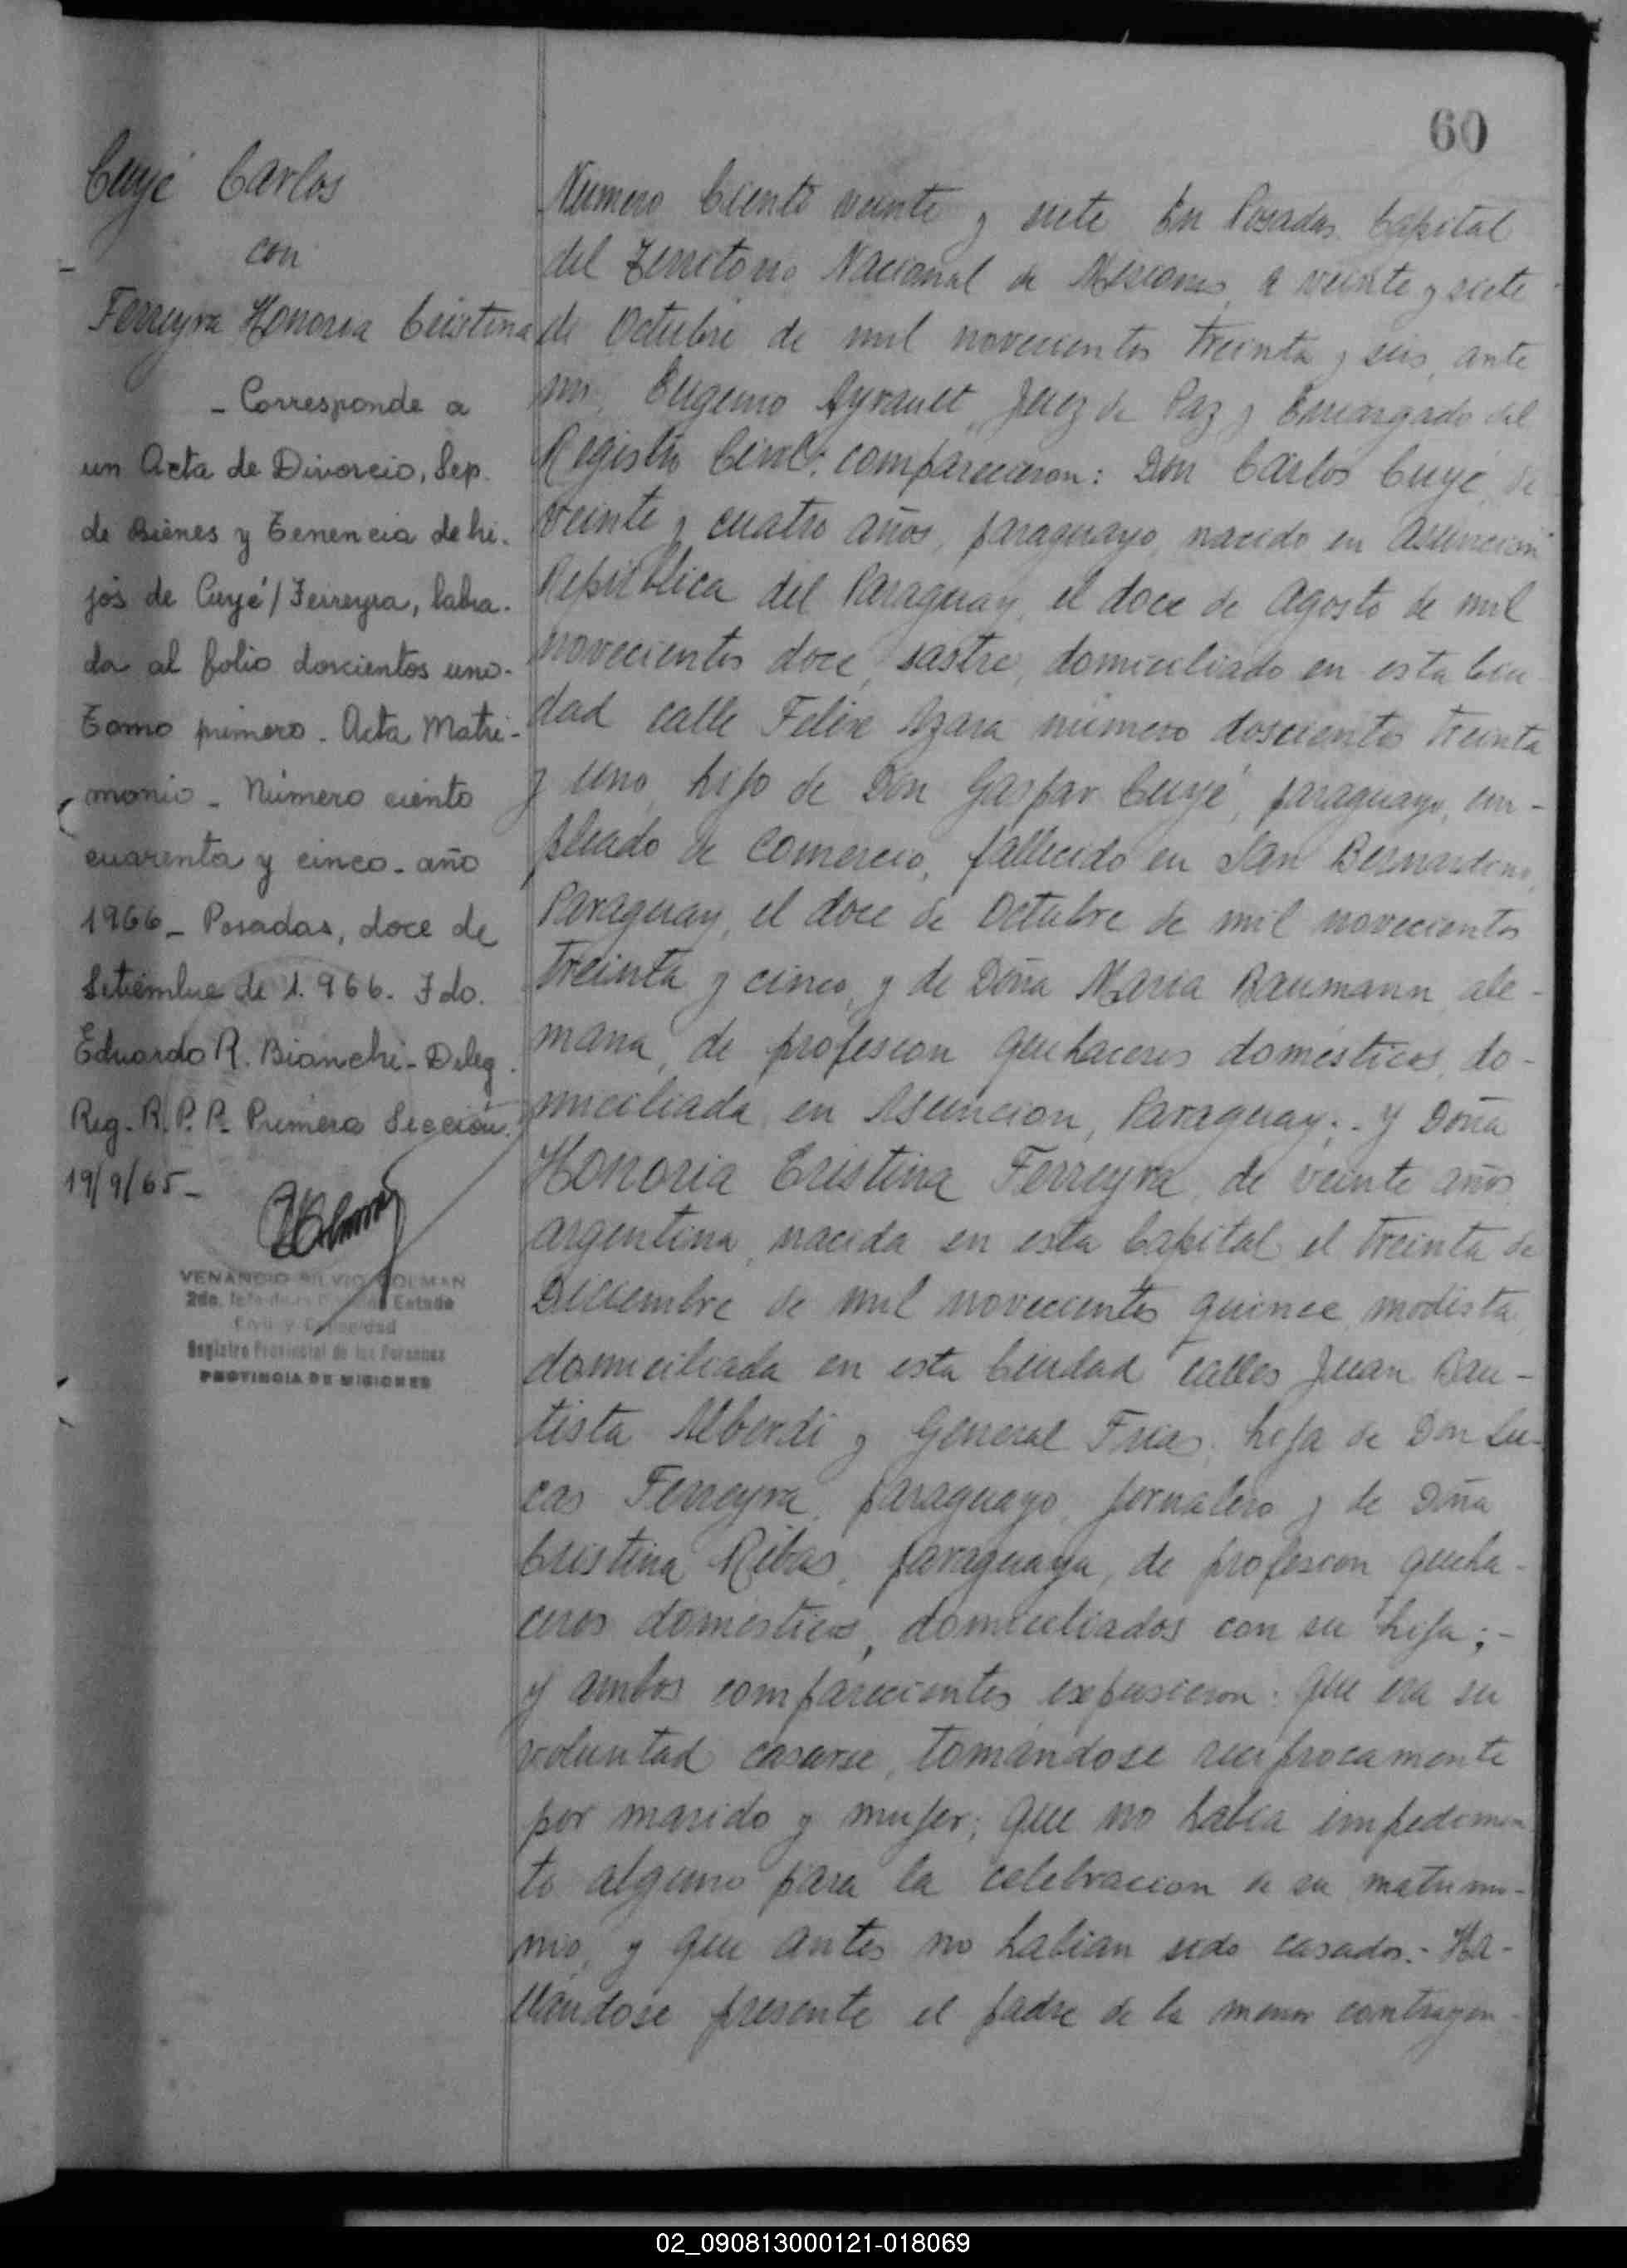 60
Cuyé Carlos
con
Ferreyra Honoria Cristina
- Corresponde a
un Acta de Divorcio, Sep.
de Bienes y Tenencia de hi-
jos de Cuyé / Ferreyra, labra-
da al folio doscientos uno-
Tomo primero - Acta Matri-
monio - Número ciento
cuarenta y cinco - año
1966 - Posadas, doce de
Setiembre de 1.966. Fdo.
Eduardo R. Bianchi - Deleg.
Reg. R. P. P. Primera Sección.
19/9/65 -
VENANCIO SILVIO COLMAN
2do. Jefe Estado
Civil y Capacidad
Registro Provincial de las Personas
PROVINCIA DE MISIONES
Número Ciento veinte y siete En Posadas, Capital
del Territorio Nacional de Misiones, a veinte y siete
de Octubre de mil novecientos treinta y seis, ante
mi, Eugenio Ayrault, Juez de Paz y Encargado del
Registro Civil; comparecieron: Don Carlos Cuyé, de
veinte y cuatro años, paraguayo, nacido en Asunción
República del Paraguay, el doce de Agosto de mil
novecientos doce, sastre, domiciliado en esta Ciu-
dad calle Felix Azara número doscientos treinta
y uno, hijo de Don Gaspar Cuyé, paraguayo, em-
pleado de comercio, fallecido en San Bernardino,
Paraguay, el doce de Octubre de mil novecientos
treinta y cinco, y de Doña Maria Baumann, ale-
mana, de profesion quehaceres domésticos, do-
miciliada en Asuncion, Paraguay; - y Doña
Honoria Cristina Ferreyra, de veinte años,
argentina, nacida en esta Capital el treinta de
Diciembre de mil novecientos quince, modista,
domiciliada en esta Ciudad calles Juan Bau-
tista Alberdi y General Frias, hija de Don Lu-
cas Ferreyra, paraguayo, jornalero y de Doña
Cristina Ribas, paraguaya, de profesion queha-
ceres domésticos, domiciliados con su hija; -
y ambos comparecientes expusieron: que era su
voluntad casarse, tomándose recíprocamente
por marido y mujer; que no habia impedimen-
to alguno para la celebracion de su matrimo-
nio, y que antes no habian sido casados.- Ha-
llándose presente el padre de la menor contrayen-
02_090813000121-018069